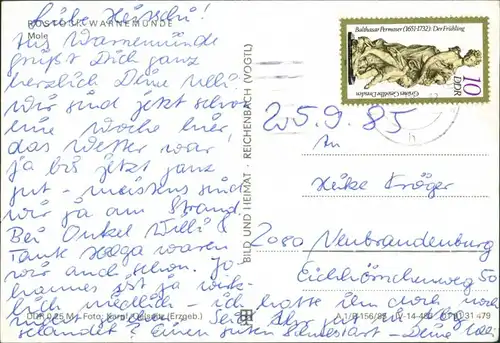 Liebe Heike!
ROSTOCK-WARNEMÜNDE
Mole
Aus Warnemünde
grüßt Dich ganz
herzlich Deine Ulli!
Wir sind jetzt schon
eine Woche hier,
das Wetter war
ja bis jetzt ganz
gut - meistens sind
wir ja am Strand.
Bei Onkel Willi &
Tante Helga waren
wir auch schon. Jo-
hannes ist ja wirk-
lich niedlich - ich hatte ihn doch noch
DDR 0,25 M Foto: Karpf, (Erzgeb.)
gelandet? Einen guten Schulstart - Deine
BILD UND HEIMAT · REICHENBACH (VOGTL)
Balthasar Permoser (1651-1732): Der Frühling
Grünes Gewölbe Dresden
DDR
10
25.9.85
An
Heike Kröger
2080 Neubrandenburg
Eichhörnchenweg 50
A 1/B 156/85 IV-14-483 01 01 31 479